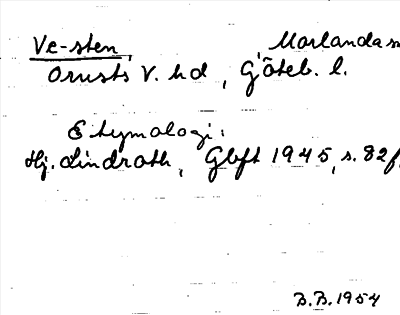 Ve-sten, Morlanda sn
Orusts V. hd, Göteb. l.
Etymologi:
Hj. Lindroth, Gbft 1945, s. 82f.
B.B. 1954